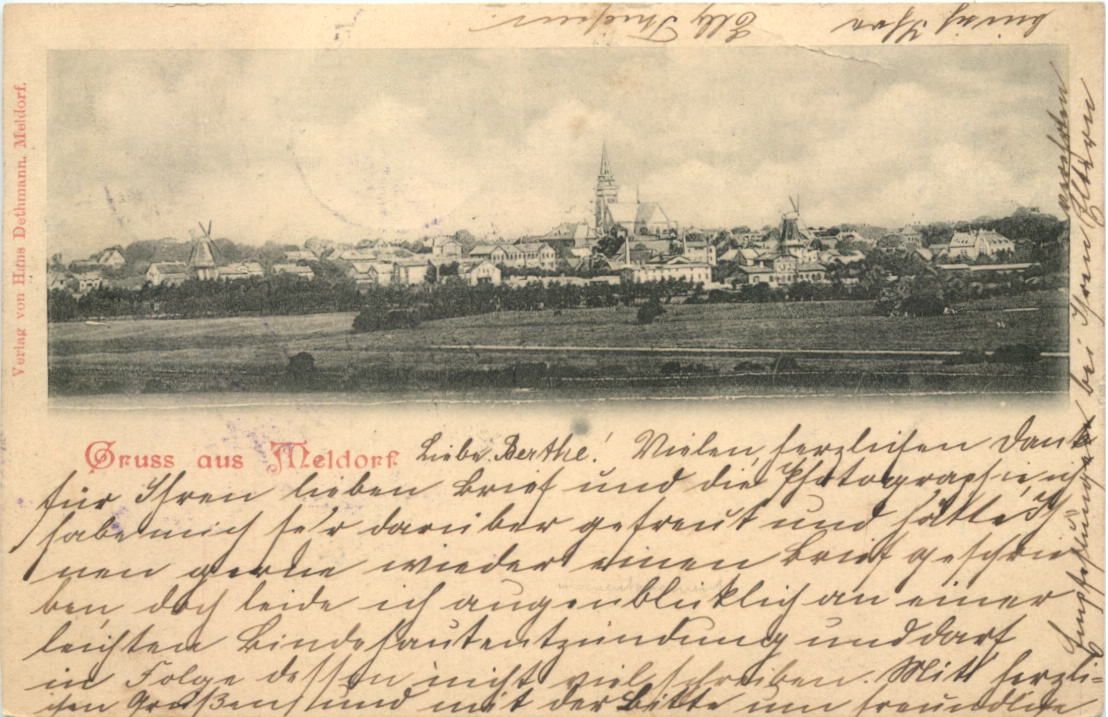 Verlag von Hans Dethmann, Meldorf.
Gruss aus Meldorf.
Liebe Berthe! Vielen herzlichen Dank
für Ihren lieben Brief und die Photographie ich
habe mich sehr darüber gefreut und hätte Ih
nen gerne wieder einen Brief geschrie
ben, doch leide ich augenblicklich an einer
leichten Bindehautentzündung und darf
in Folge dessen nicht viel schreiben. Mit herzli-
chen Grüßen und mit der Bitte um freundliche
Empfehlungen bei Ihren Eltern
bin ich Ihre
Elly